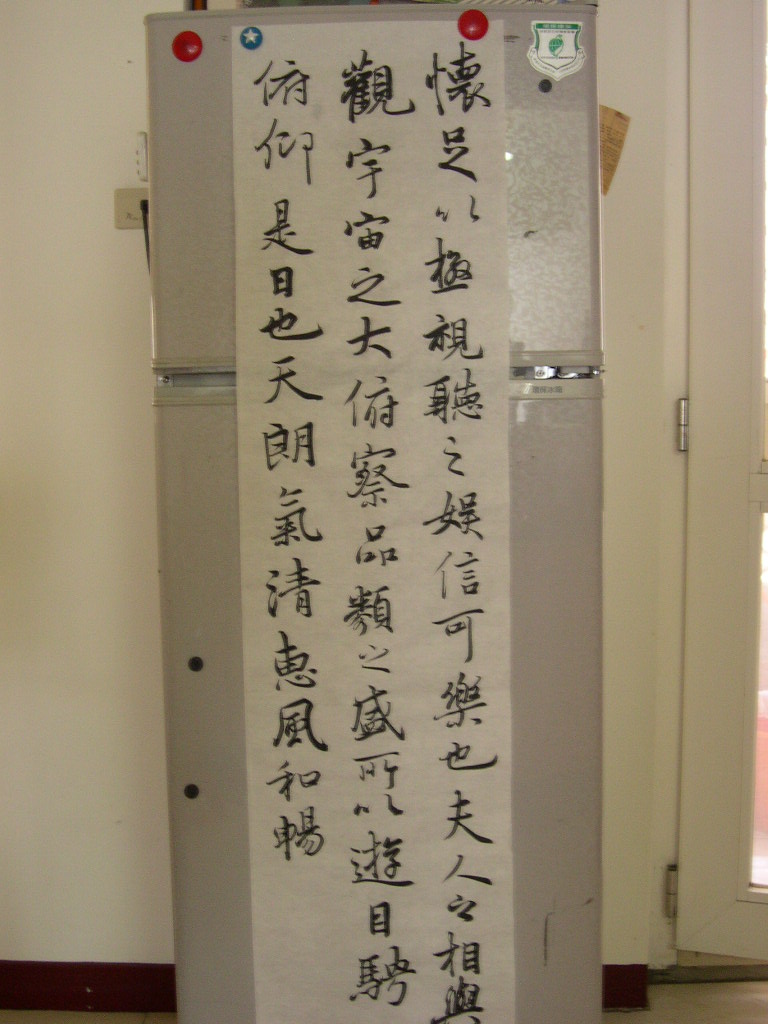 俯仰 是日也天朗氣清惠風和暢
觀宇宙之大俯察品類之盛所以遊目騁
懷足以極視聽之娛信可樂也夫人之相與